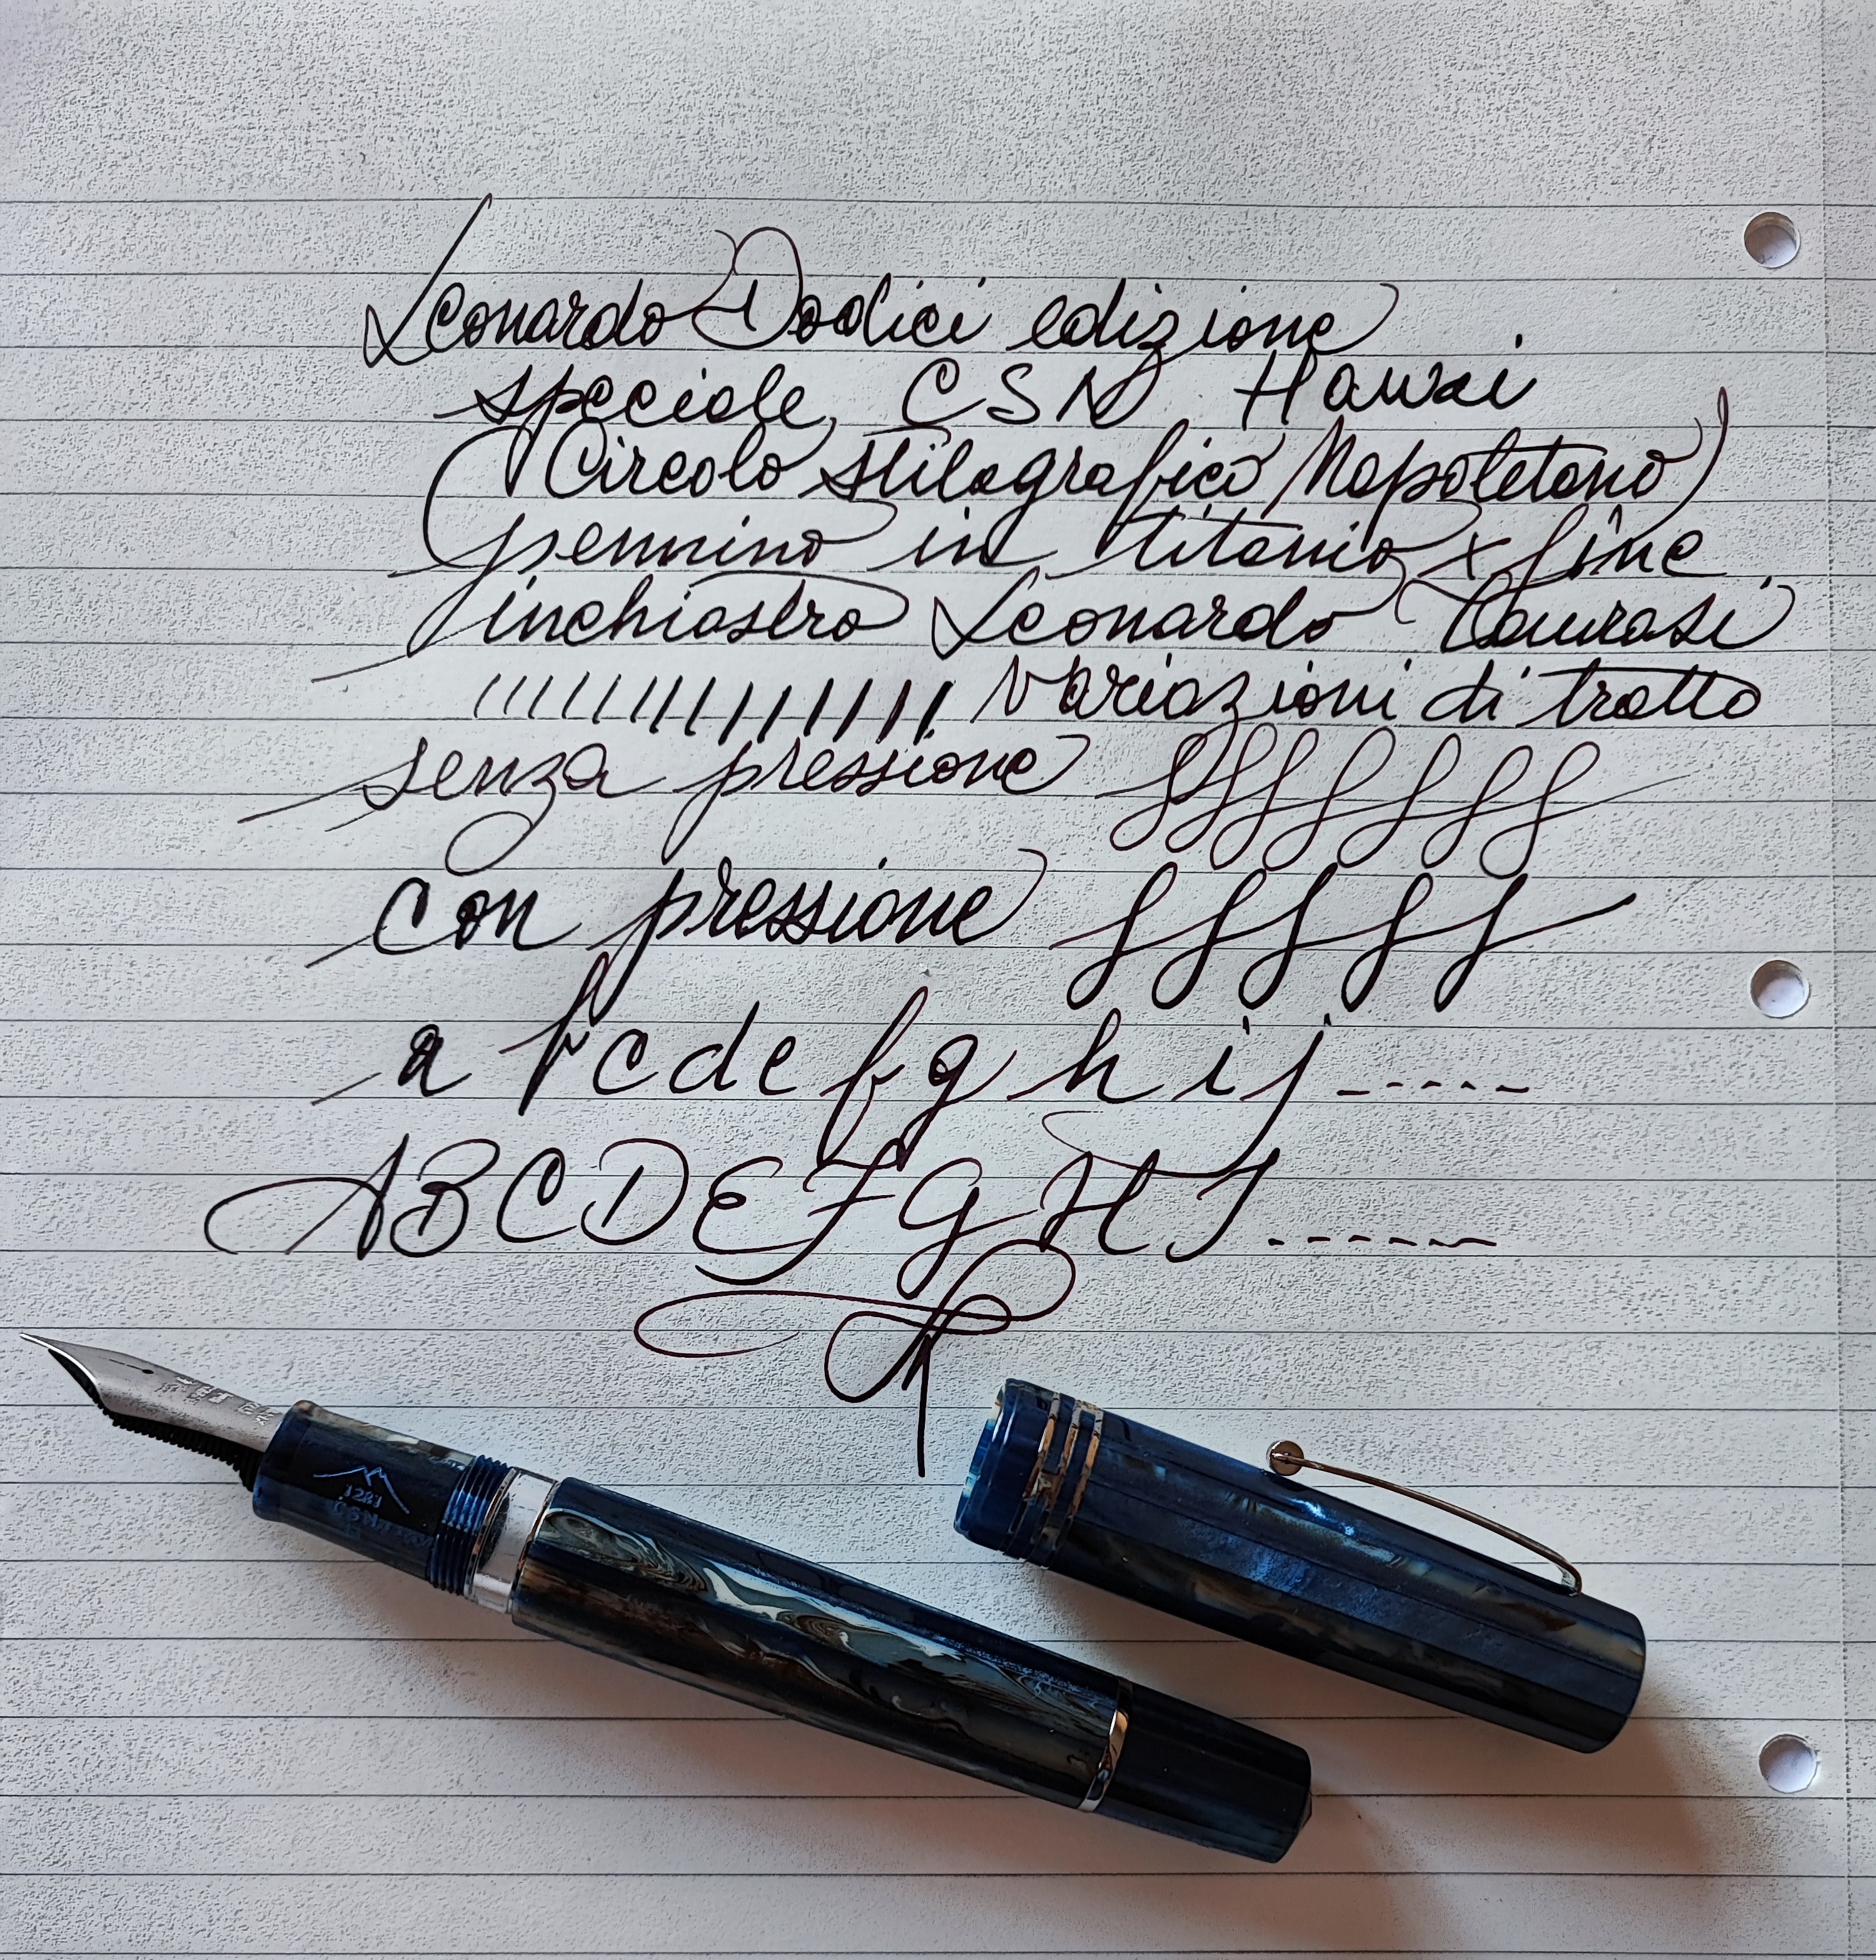 Leonardo Dodici edizione
speciale CSN Hawai
(Circolo stilografico Napoletano)
pennino in titanio x fine
inchiostro Leonardo Taurasi
Variazioni di tratto
senza pressione
con pressione
a b c d e f g h i j -----
A B C D E F G H I ------
1281